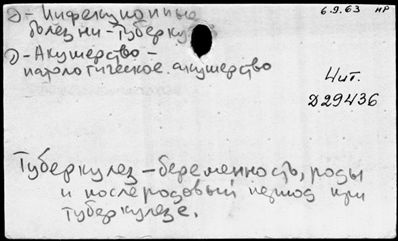 Э- Инфекционные
болезни - Туберкулез
Э- Акушерство -
патологическое акушерство
6.9.63 НР
Чит.
Д29436
Туберкулез - беременность, роды
и послеродовый период при
туберкулезе.